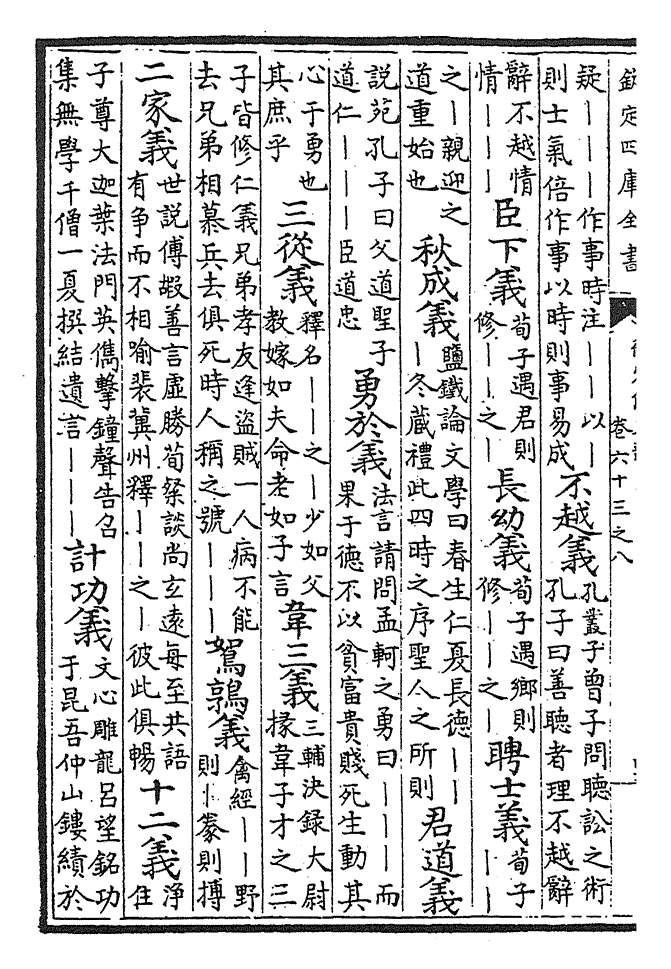 欽定四庫全書
卷六十三之八
疑｜｜｜作事時注｜｜以｜
則士氣倍作事以時則事易成
不越義
孔叢子曽子問聽訟之術
孔子曰善聽者理不越辭
辭不越情
情｜｜｜
臣下義
荀子遇君則
修｜｜之｜
長幼義
荀子遇鄉則
修｜｜之｜
聘士義
荀子
｜｜
之｜親迎之
道重始也
秋成義
鹽鐵論文學曰春生仁夏長德｜｜
｜冬藏禮此四時之序聖人之所則
君道義
説苑孔子曰父道聖子
道仁｜｜｜臣道忠
勇於義
法言請問孟軻之勇曰｜｜｜而
果于德不以貧富貴賤死生動其
心于勇也
其庶乎
三從義
釋名｜｜之｜少如父
教嫁如夫命老如子言
韋三義
三輔決録大尉
掾韋子才之三
子皆修仁義兄弟孝友逢盜賊一人病不能
去兄弟相慕兵去俱死時人稱之號｜｜｜
鴛鶉義
禽經｜｜野
則｜豢則摶
二家義
世説傅嘏善言虚勝荀粲談尚玄遠每至共語
有争而不相喻裴冀州釋｜｜之｜彼此俱暢
十二義
淨
住
子尊大迦葉法門英儁擊鐘聲告召
集無學千僧一夏撰結遺言｜｜｜
計功義
文心雕龍吕望銘功
于昆吾仲山鏤績於